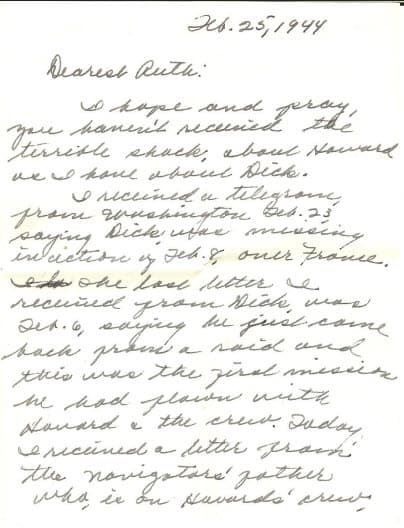 Feb. 25, 1944
Dearest Ruth:
I hope and pray,
you haven't received the
terrible shock, about Howard
as I have about Dick.
I received a telegram,
from Washington Feb. 23,
saying Dick, was missing
in action of Feb. 8, over France.
The last letter I
received from Dick, was
Feb. 6, saying he just came
back from a raid and
this was the first mission
he had flown with
Howard & the crew. Today
I received a letter from
the navigators' father
who, is on Howards' crew,